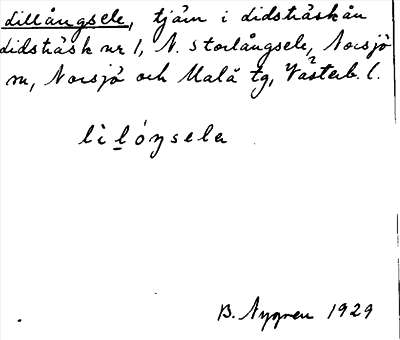 Lillångsele, tjärn i Lidsträskån
Lidsträsk nr 1, N. Storlångsele, Norsjö
sn, Norsjö och Malå tg, Västerb. l.
lìḷóŋsela
B. Nygren 1929